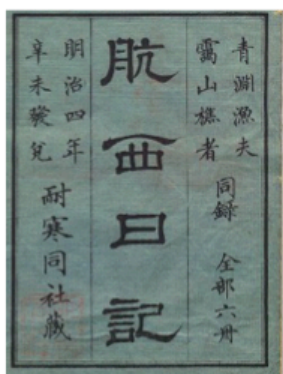 青淵漁夫
靄山樵者
同録 全部六冊
航西日記
明治四年
辛未發兌
耐寒同社藏